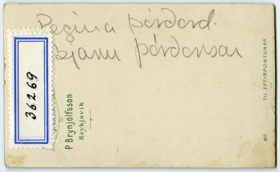 Regina Þórðard.
Bjarni Þórðarson
36269
P. Brynjólfsson
Reykjavík
TIL EFTIRPÖNTUNAR